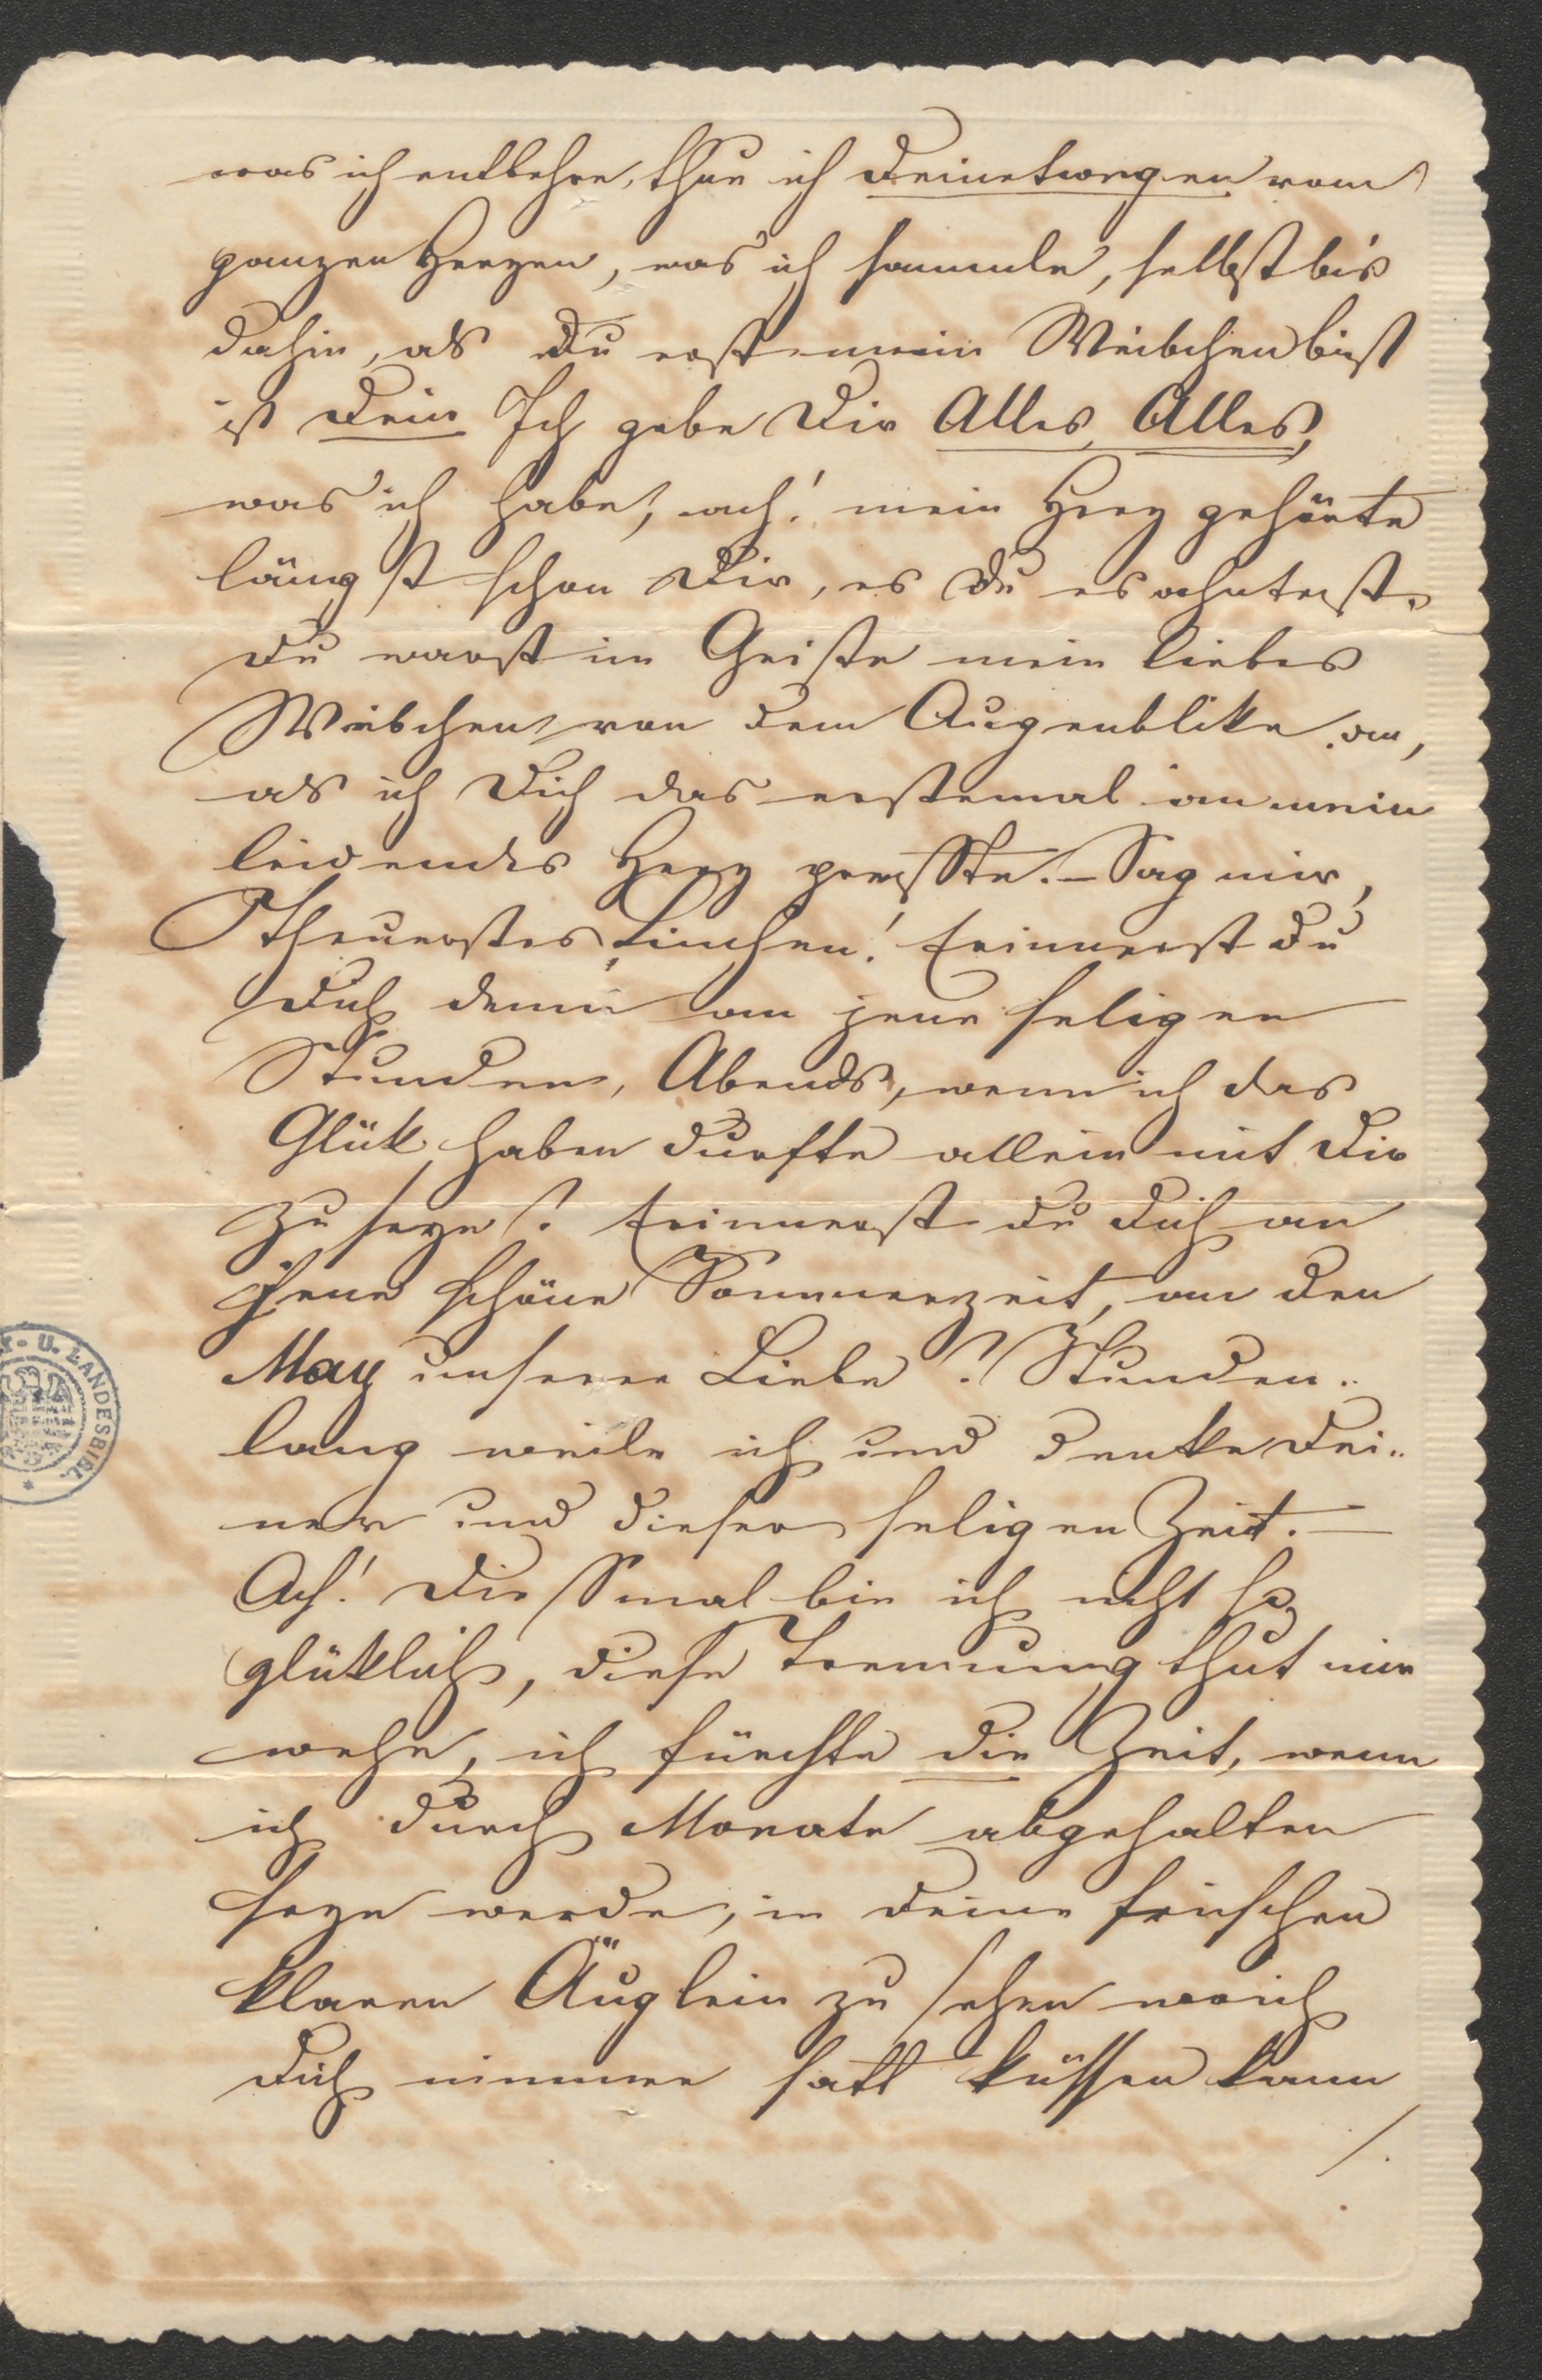 was ich entbehre, thue ich Deinetwegen vom
ganzen Herzen, was ich sammle, selbst bis
dahin, als Du erst mein Weibchen bist
ist Dein Ich gebe Dir Alles, Alles,
was ich habe, ach! mein Herz gehörte
längst schon Dir, es Du es ahntest.
Du warst im Geiste mein liebes
Weibchen von dem Augenblike an,
als ich Dich das erstemal an mein
leidendes Herz presste. – Sag mir,
O theuerstes Linchen! Erinnerst Du
Dich denn an jene seligen
Stunden, Abends, wenn ich das
Glük haben durfte allein mit Dir
zu seyn? Erinnerst Du Dich an
jene schöne Sommerzeit, an den
May unserer Liebe? Stunden-
lang weile ich und denke Dei-
ner und dieser seligen Zeit. –
Ach! Diessmal bin ich nicht so
glüklich, diese Trennung thut mir
wehe, ich fürchte die Zeit, wenn
ich durch Monate abgehalten
seyn werde, in Deine frischen
klaren Äuglein zu sehen
Dich nimmer satt küssen kann
/.
U. LANDESBIBL.